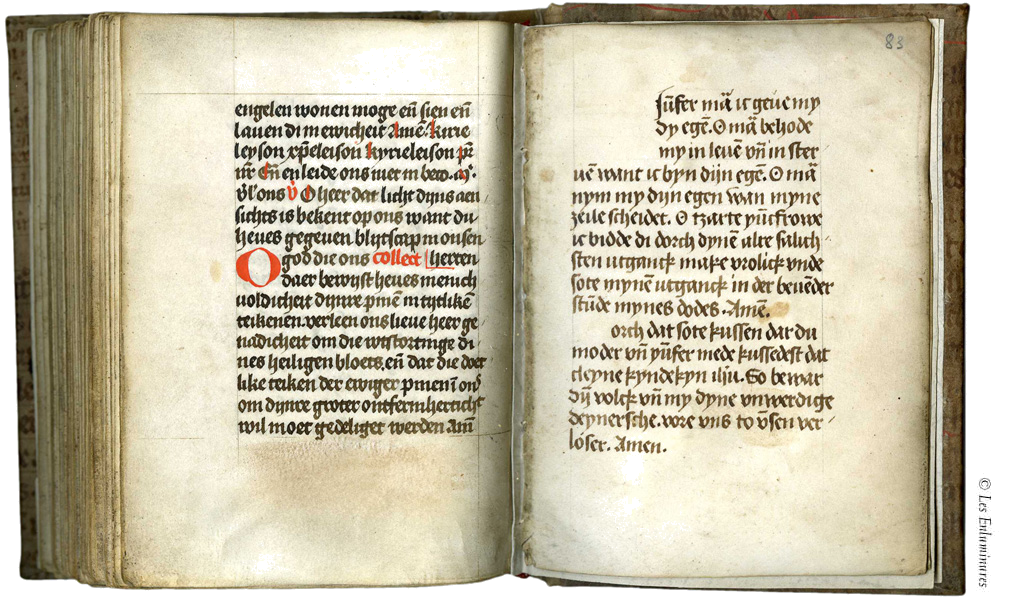 engelen wonen moge en̄ sien en̄
lauen di in ewicheit Amē. kirie
leyson xp̄eleison kyrieleison pr̄
nr̄ En̄ en leide ons niet in beco. m̄.
v̄l ons v̄ O heer dat licht dijns aen
sichts is bekent op ons want du
heues gegeuen blijtscap in onsen
O god die ons collect herten
daer bewijst heues menich
voldicheit dijnre pinē in tijtlikē
teikenen. verleen ons lieue heer ge
nadicheit om die wtstortinge di
nes heiligen bloets, en̄ dat die doet
like teiken der ewiger pinen ī ons
om dijnre groter ontfermherticht
wil moet gedeliget werden Am̄
83
Jūfer mā ic geue my
dy egē. O mā behode
my in leuē vn̄ in ster
uē want ic byn dijn egē. O mā
nym my dijn egen wan myne
zeile scheidet. O tzarte yūcfrowe
ic bidde di dorch dynē alre salich
sten utganck make vrolick vnde
sote mynē utganck in der beuēder
stūde mynes dodes. Amē.
orch dat sote kussen dat du
moder vn̄ yūfer mede kussedest dat
cleyne kyndekyn ihū. So bewar
dij volck vn̄ my dyne vnwerdige
deynersche. vore vns to vsen ver
loser. Amen.
© Les Enluminures